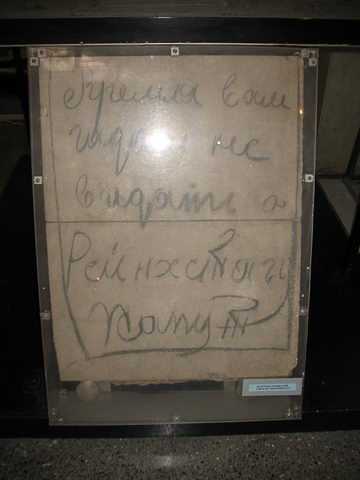 Кремля вам
гадам не
видать а
Рейнхстагу
капут